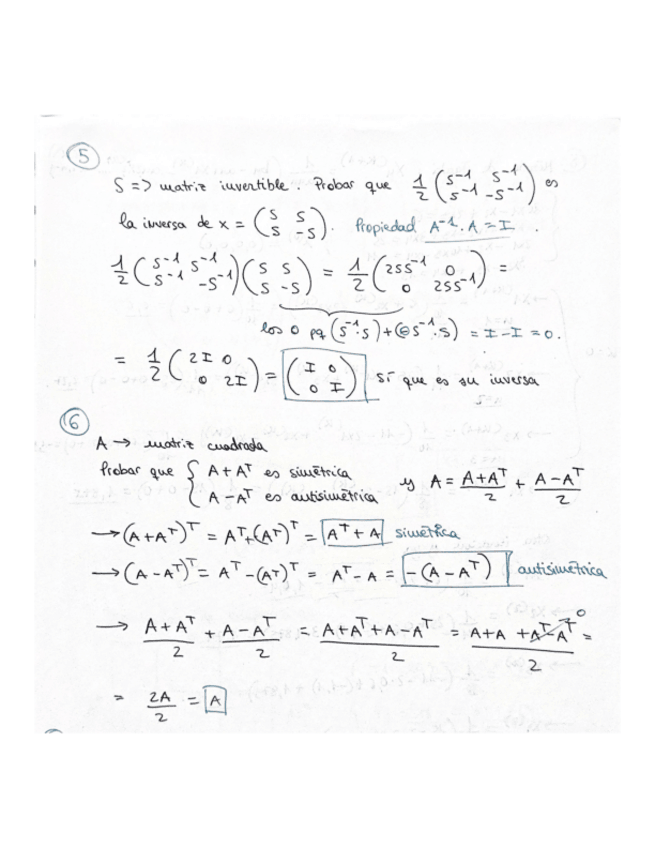 5
S => matriz invertible. Probar que 1/2 (S⁻¹ S⁻¹ ; S⁻¹ -S⁻¹) es
la inversa de x = (S S ; S -S). Propiedad A⁻¹. A = I.
1/2 (S⁻¹ S⁻¹ ; S⁻¹ -S⁻¹) (S S ; S -S) = 1/2 (2SS⁻¹ 0 ; 0 2SS⁻¹) =
los 0 pq (S⁻¹.S)+(⊖S⁻¹.S) = I-I = 0.
= 1/2 (2I 0 ; 0 2I) = (I 0 ; 0 I) sí que es su inversa
6
A → matriz cuadrada
Probar que { A + Aᵀ es simétrica
A - Aᵀ es antisimétrica y A = (A+Aᵀ)/2 + (A-Aᵀ)/2
→ (A+Aᵀ)ᵀ = Aᵀ+(Aᵀ)ᵀ = Aᵀ + A simétrica
→ (A - Aᵀ)ᵀ = Aᵀ - (Aᵀ)ᵀ = Aᵀ - A = -(A - Aᵀ) antisimétrica
→ (A+Aᵀ)/2 + (A-Aᵀ)/2 = (A+Aᵀ+A-Aᵀ)/2 = (A+A+Aᵀ-Aᵀ)/2 0 =
= 2A/2 = A